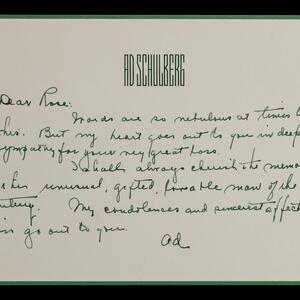 AD SCHULBERG
Dear Rose:
Words are so nebulous at times
this. But my heart goes out to you in deep
sympathy for your very great loss.
I shall always cherish the memo
this unusual, gifted, man of the
My condolences and sincerest affect
go out to you.
Ad